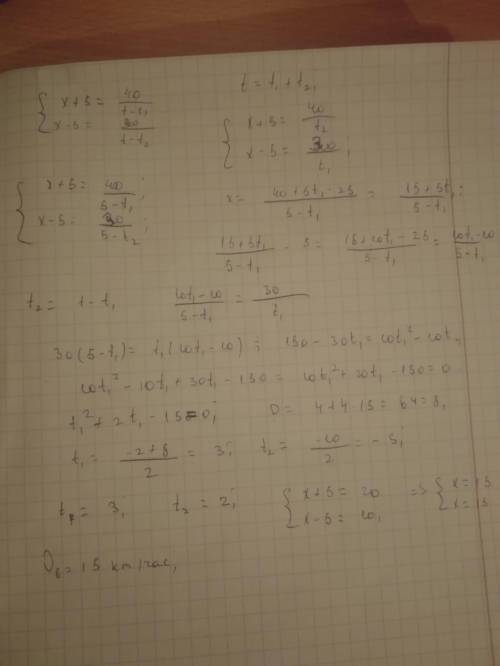 { x+5 = 40/(t-t₁)    t = t₁ + t₂,
x-5 = 30/(t-t₂)    { x+5 = 40/t₂
x-5 = 30/t₁,
{ x+5 = 40/(5-t₁);    x = (40+5t₁-25)/(5-t₁) = (15+5t₁)/(5-t₁);
x-5 = 30/(5-t₂);    (15+5t₁)/(5-t₁) - 5 = (15+10t₁-25)/(5-t₁) = (10t₁-10)/(5-t₁)
t₂ = t-t₁    (10t₁-10)/(5-t₁) = 30/t₁
30(5-t₁) = t₁(10t₁-10); 150-30t₁ = 10t₁²-10t₁,
10t₁²-10t₁+30t₁-150 = 10t₁²+20t₁-150=0
t₁²+2t₁-15=0; D = 4+4·15 = 64 = 8,
t₁ = (-2+8)/2 = 3; t₂ = -10/2 = -5;
3, t₂ = 2; { x+5 = 20 => { x = 15
x-5 = 10, x = 15
= 15 km/час,